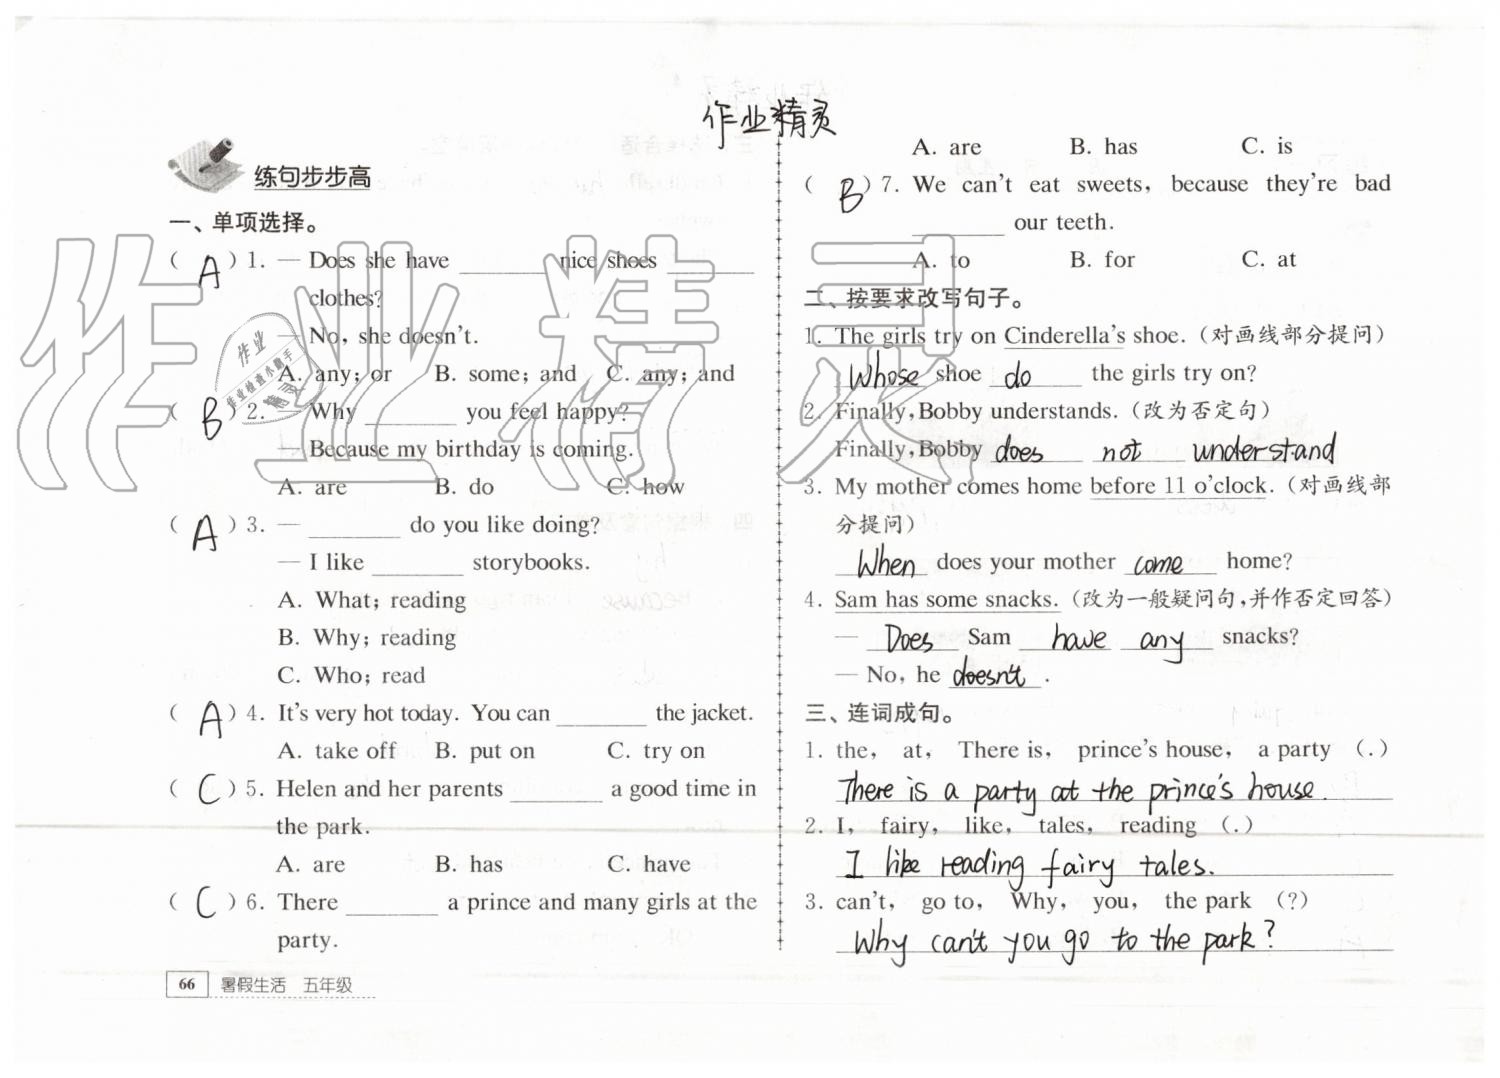 作业精灵
练句步步高
一、单项选择。
( A ) 1. — Does she have ________ nice shoes ________
clothes?
— No, she doesn't.
A. any; or B. some; and C. any; and
( B ) 2. — Why ________ you feel happy?
— Because my birthday is coming.
A. are B. do C. how
( A ) 3. — ________ do you like doing?
— I like ________ storybooks.
A. What; reading
B. Why; reading
C. Who; read
( A ) 4. It's very hot today. You can ________ the jacket.
A. take off B. put on C. try on
( C ) 5. Helen and her parents ________ a good time in
the park.
A. are B. has C. have
( C ) 6. There ________ a prince and many girls at the
party.
66 暑假生活 五年级
A. are B. has C. is
( B ) 7. We can't eat sweets, because they're bad
________ our teeth.
A. to B. for C. at
二、按要求改写句子。
1. The girls try on Cinderella's shoe. (对画线部分提问)
Whose shoe do the girls try on?
2. Finally, Bobby understands. (改为否定句)
Finally, Bobby does not understand
3. My mother comes home before 11 o'clock. (对画线部
分提问)
When does your mother come home?
4. Sam has some snacks. (改为一般疑问句,并作否定回答)
— Does Sam have any snacks?
— No, he doesn't.
三、连词成句。
1. the, at, There is, prince's house, a party (.)
There is a party at the prince's house.
2. I, fairy, like, tales, reading (.)
I like reading fairy tales.
3. can't, go to, Why, you, the park (?)
Why can't you go to the park?
作业精灵
作业
作业检查小助手
精灵